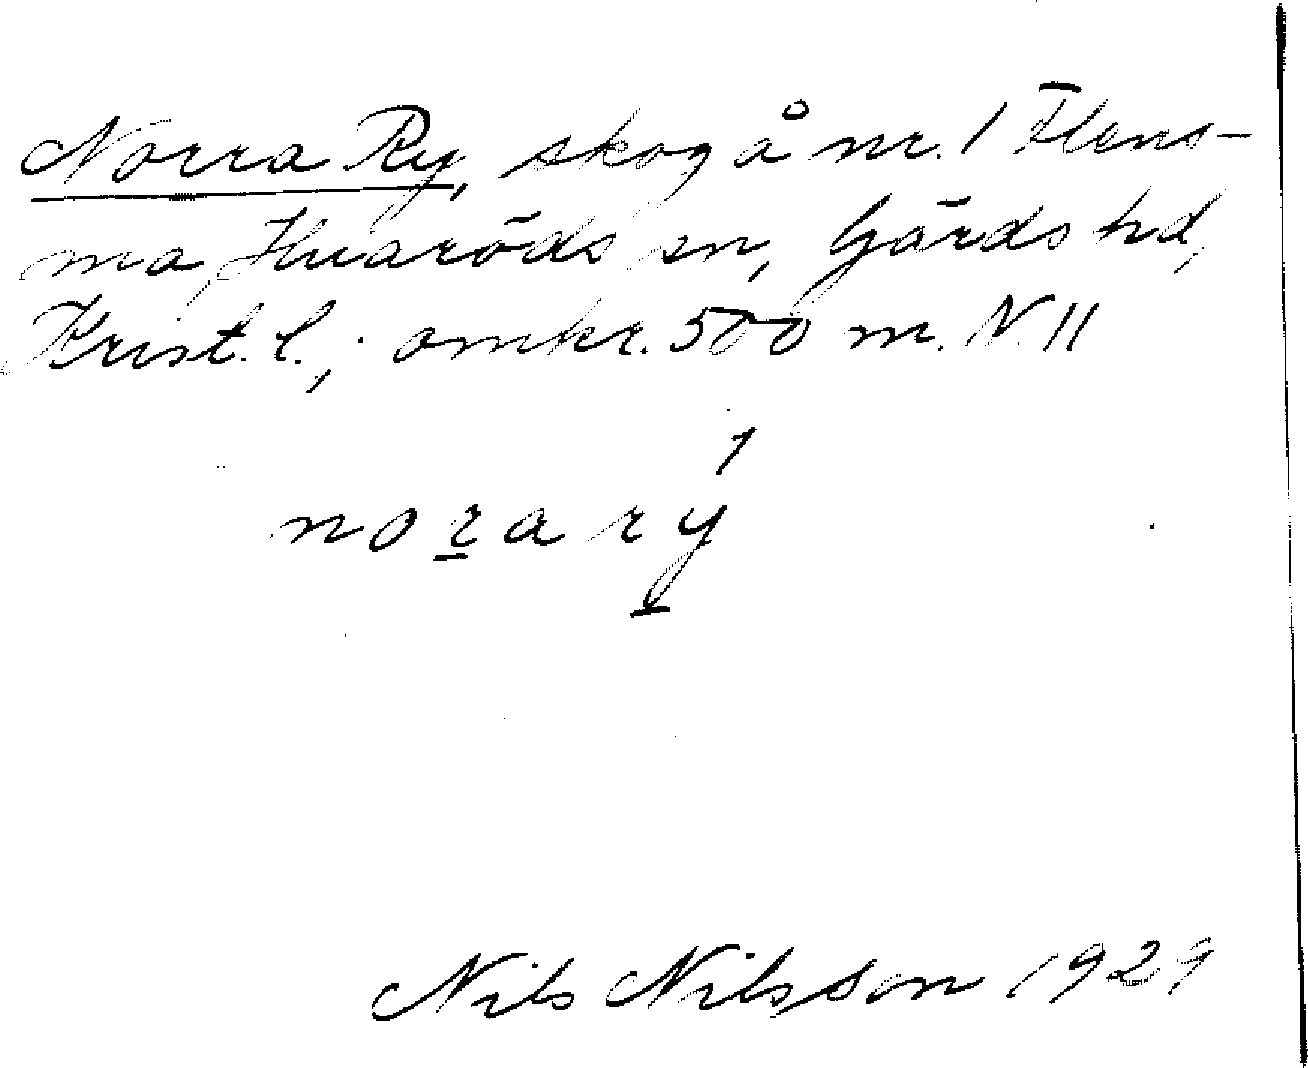 Norra Ry, skog å nr. 1 Flens-
ma, Huaröds sn, Gärds hd,
Krist. l., omkr. 500 m. N. 11
1
norary
Nils Nilsson 1929